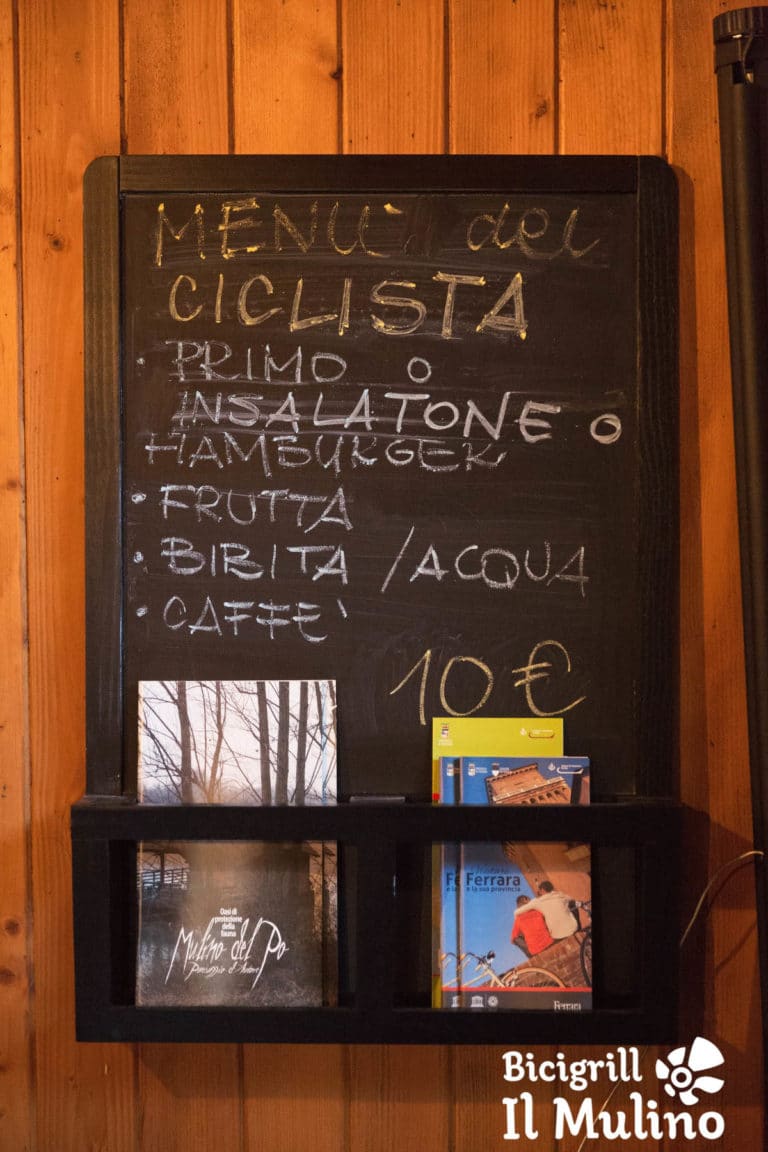 MENÙ del
CICLISTA
• PRIMO o
INSALATONE o
HAMBURGER
• FRUTTA
• BIBITA / ACQUA
• CAFFE'
10 €
Oasi di
protezione
della
fauna
Mulino del Po
Ferrara
e la sua provincia
Ferrara
Bicigrill
Il Mulino